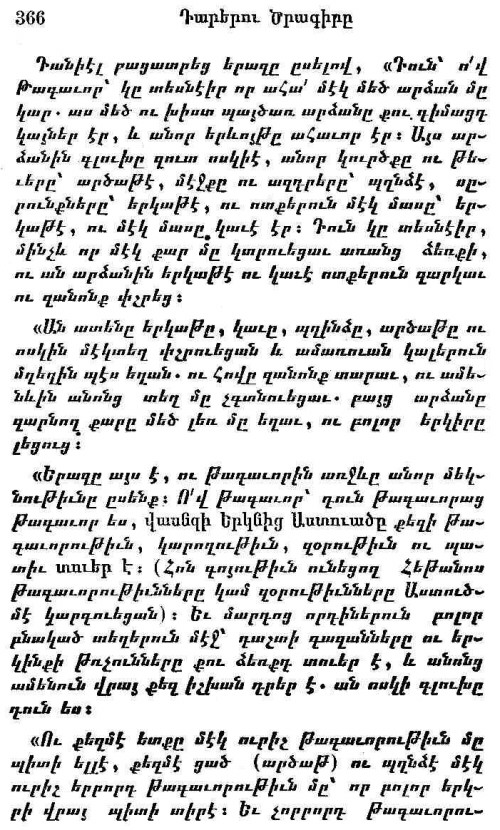 366 Դարերու Ծրագիրը
Դանիէլ բացատրեց երազը ըսելով, «Դուն՝ ո՛վ
Թագաւոր՝ կը տեսնէիր որ ահա՛ մէկ մեծ արձան մը
կար. աս մեծ ու խիստ պայծառ արձանը քու դիմացդ
կայներ էր, և անոր երևոյթը ահաւոր էր: Այս ար-
ձանին գլուխը զուտ ոսկիէ, անոր կուրծքը ու թե-
ւերը՝ արծաթէ, մէջքը ու ազդրերը՝ պղնձէ, սը-
րունքները՝ երկաթէ, ու ոտքերուն մէկ մասը՝ եր-
կաթէ, ու մէկ մասը կաւէ էր: Դուն կը տեսնէիր,
մինչև որ մէկ քար մը կտրուեցաւ առանց ձեռքի,
ու ան արձանին երկաթէ ու կաւէ ոտքերուն զարկաւ
ու զանոնք փշրեց:
«Ան ատենը երկաթը, կաւը, պղինձը, արծաթը ու
ոսկին մէկտեղ փշրուեցան և ամառուան կալերուն
մղեղին պէս եղան. ու Հովը զանոնք տարաւ, ու ամե-
նևին անոնց տեղ մը չգտնուեցաւ. բայց արձանը
զարնող քարը մեծ լեռ մը եղաւ, ու բոլոր երկիրը
լեցուց:
«Երազը այս է, ու թագաւորին առջևը անոր մեկ-
նութիւնը ըսենք: Ո՛վ Թագաւոր՝ դուն Թագաւորաց
Թագաւոր ես, վասնզի Երկնից Աստուածը քեզի Թա-
գաւորութիւն, կարողութիւն, զօրութիւն ու պա-
տիւ տուեր է: (Հոն գոյութիւն ունեցող Հեթանոս
թագաւորութիւնները կամ զօրութիւնները Աստուծ-
մէ կարգուեցան): Եւ մարդոց որդիներուն բոլոր
բնակած տեղերուն մէջ՝ դաշտի գազանները ու եր-
կինքի թռչունները քու ձեռքդ տուեր է, և անոնց
ամենուն վրայ քեզ իշխան դրեր է. ան ոսկի գլուխը
դուն ես:
«Ու քեզմէ ետքը մէկ ուրիշ թագաւորութիւն մը
պիտի ելլէ, քեզմէ ցած (արծաթ) ու պղնձէ մէկ
ուրիշ երրորդ թագաւորութիւն մը՝ որ բոլոր երկ-
րի վրայ պիտի տիրէ: Եւ չորրորդ թագաւորու-